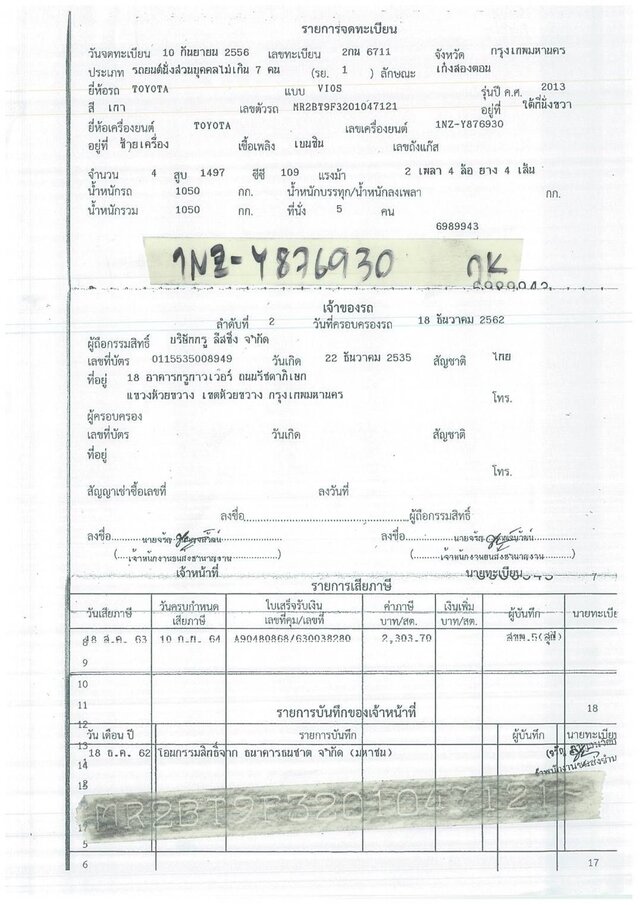 รายการจดทะเบียน
วันจดทะเบียน 10 กันยายน 2556 เลขทะเบียน 2กน 6711 จังหวัด กรุงเทพมหานคร
ประเภท รถยนต์นั่งส่วนบุคคลไม่เกิน 7 คน (รย. 1 ) ลักษณะ เก๋งสองตอน
ยี่ห้อรถ TOYOTA แบบ VIOS รุ่นปี ค.ศ. 2013
สี เทา เลขตัวรถ MR2BT9F3201047121 อยู่ที่ ใต้ที่นั่งขวา
ยี่ห้อเครื่องยนต์ TOYOTA เลขเครื่องยนต์ 1NZ-Y876930
อยู่ที่ ซ้ายเครื่อง เชื้อเพลิง เบนซิน เลขถังแก๊ส
จำนวน 4 สูบ 1497 ซีซี 109 แรงม้า 2 เพลา 4 ล้อ ยาง 4 เส้น
น้ำหนักรถ 1050 กก. น้ำหนักบรรทุก/น้ำหนักลงเพลา กก.
น้ำหนักรวม 1050 กก. ที่นั่ง 5 คน
6989943
1NZ-Y876930 OK
6989943
เจ้าของรถ
ลำดับที่ 2 วันที่ครอบครองรถ 18 ธันวาคม 2562
ผู้ถือกรรมสิทธิ์ บริษัทกรู ลีสซิ่ง จำกัด
เลขที่บัตร 0115535008949 วันเกิด 22 ธันวาคม 2535 สัญชาติ ไทย
ที่อยู่ 18 อาคารกรูทาวเวอร์ ถนนรัชดาภิเษก
แขวงห้วยขวาง เขตห้วยขวาง กรุงเทพมหานคร โทร.
ผู้ครอบครอง
เลขที่บัตร วันเกิด สัญชาติ
ที่อยู่
โทร.
สัญญาเช่าซื้อเลขที่ ลงวันที่
ลงชื่อ ผู้ถือกรรมสิทธิ์
ลงชื่อ นายจรัญ ลงชื่อ นายจรัญ
(เจ้าพนักงานขนส่งชำนาญงาน) (เจ้าพนักงานขนส่งชำนาญงาน)
เจ้าหน้าที่ นายทะเบียน
รายการเสียภาษี 7
วันเสียภาษี วันครบกำหนดเสียภาษี ใบเสร็จรับเงิน เลขที่คุม/เลขที่ ค่าภาษี บาท/สต. เงินเพิ่ม บาท/สต. ผู้บันทึก นายทะเบี
18 ส.ค. 63 10 ก.ย. 64 A90480868/630038280 2,303.70 สขพ.5(สุ
9
10
11 18
รายการบันทึกของเจ้าหน้าที่
12
วัน เดือน ปี รายการบันทึก ผู้บันทึก นายทะเบียน
13
18 ธ.ค. 62 โอนกรรมสิทธิ์จาก ธนาคารธนชาต จำกัด (มหาชน)
14
MR2BT9F3201047121
17
5
6 17